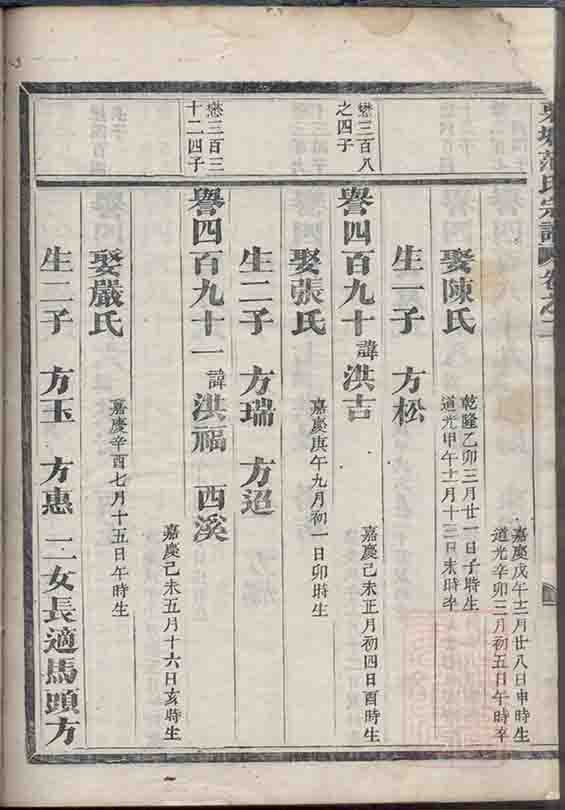 范氏宗譜 卷之二
嘉慶戊午十二月廿八日申時生
道光辛卯三月初五日午時卒
娶陳氏
乾隆乙卯三月廿一日子時生
道光甲午十二月十三日未時卒
生一子 方松
懋三百八
之四子
譽四百九十 諱洪吉
嘉慶己未正月初四日酉時生
娶張氏
嘉慶庚午九月初一日卯時生
生二子 方瑞 方迢
懋三百三
十二四子
譽四百九十一 諱洪福 西溪
嘉慶己未五月十六日亥時生
娶嚴氏
嘉慶辛酉七月十五日午時生
生二子 方玉 方惠 二女長適馬頭方